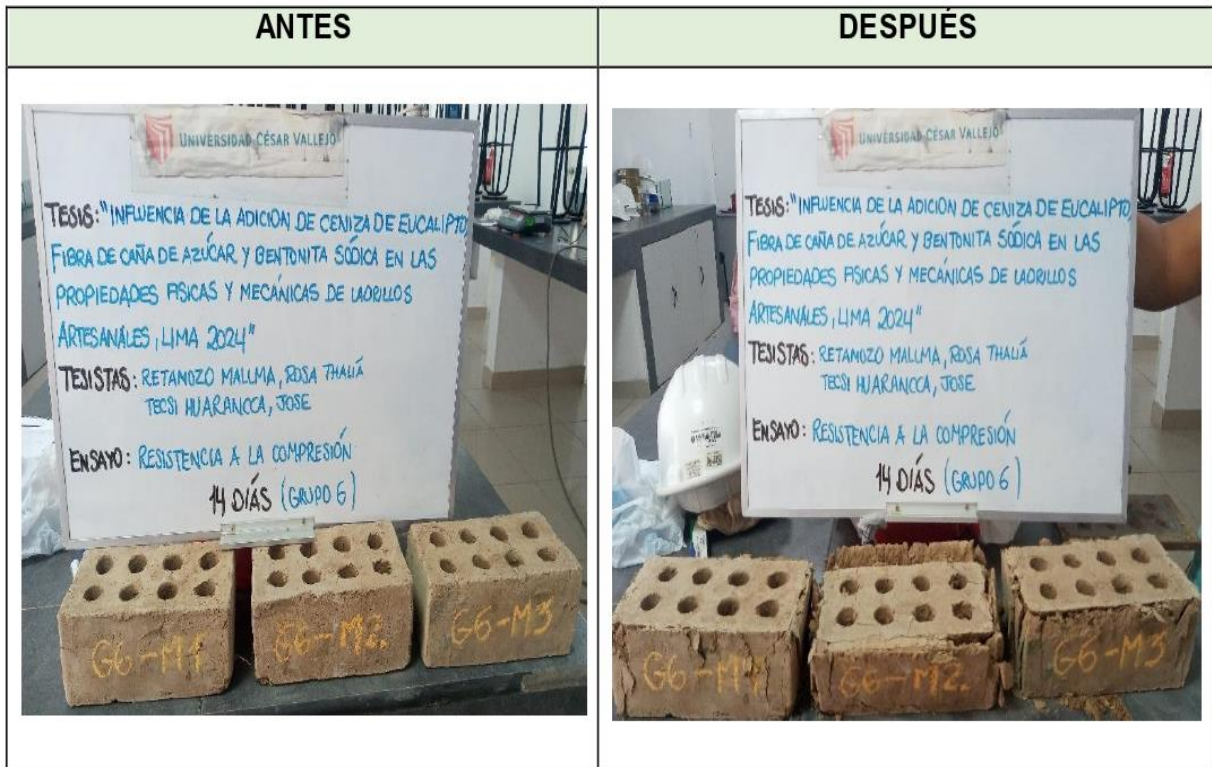 ANTES
DESPUÉS
UNIVERSIDAD CÉSAR VALLEJO
TESIS: "INFLUENCIA DE LA ADICION DE CENIZA DE EUCALIPTO,
FIBRA DE CAÑA DE AZÚCAR Y BENTONITA SÓDICA EN LAS
PROPIEDADES FISICAS Y MECÁNICAS DE LADRILLOS
ARTESANALES, LIMA 2024"
TESISTAS: RETAMOZO MALLMA, ROSA THALIÁ
TECSI HUARANCCA, JOSE
ENSAYO: RESISTENCIA A LA COMPRESIÓN
14 DÍAS (GRUPO 6)
G6-M1
G6-M2.
G6-M3
UNIVERSIDAD CÉSAR VALLEJO
TESIS: "INFLUENCIA DE LA ADICION DE CENIZA DE EUCALIPTO,
FIBRA DE CAÑA DE AZÚCAR Y BENTONITA SÓDICA EN LAS
PROPIEDADES FISICAS Y MECÁNICAS DE LADRILLOS
ARTESANALES, LIMA 2024"
TESISTAS: RETAMOZO MALLMA, ROSA THALIÁ
TECSI HUARANCCA, JOSE
ENSAYO: RESISTENCIA A LA COMPRESIÓN
14 DÍAS (GRUPO 6)
G6-M1
G6-M2.
G6-M3